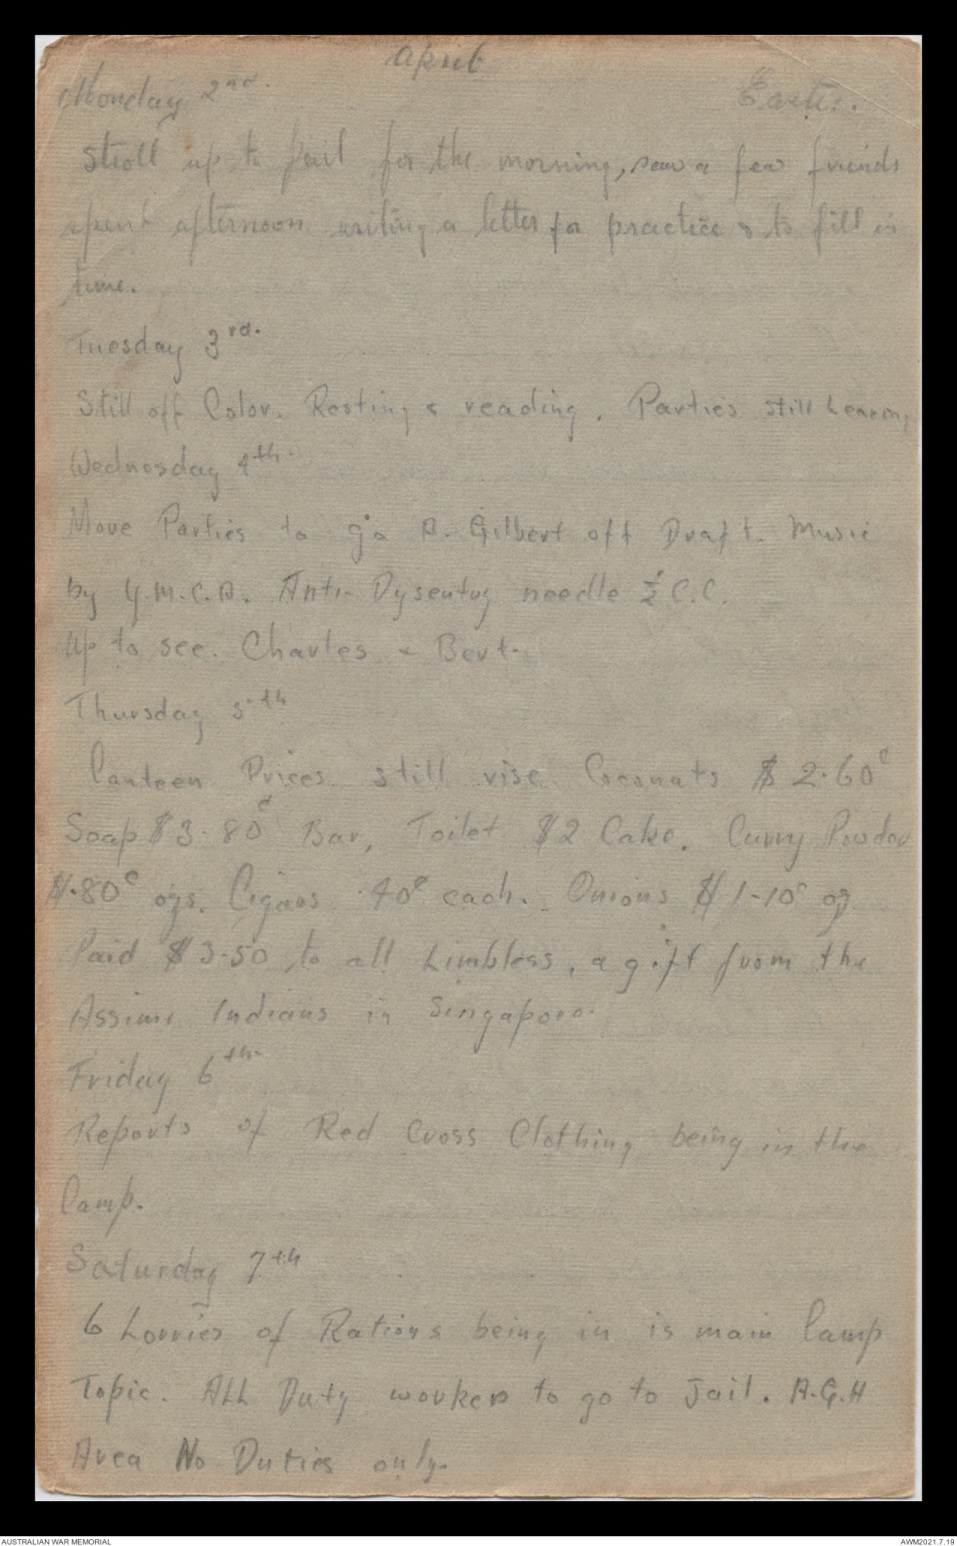 April
Monday 2nd. Easter.
Stroll up to Jail for the morning, saw a few friends
spent afternoon writing a letter for practice & to fill in
time.
Tuesday 3rd.
Still off Color. Resting & reading. Parties still Leaving
Wednesday 4th.
Move Parties to go A. Gilbert off Draft. Music
by Y.M.C.A. Anti-Dysentry needle ½ C.C.
Up to see. Charles & Bert.
Thursday 5th
Canteen Prices still rise. Coconuts $2.60c
Soap $3.80c Bar, Toilet $2 Cake. Curry Powder
$.80c ozs. Cigars .40c each. Onions $1-10c oz.
Paid $3.50 to all Limbless, a gift from the
Assimi Indians in Singapore.
Friday 6th.
Reports of Red Cross Clothing being in the
Camp.
Saturday 7th
6 Lorries of Rations being in is main Camp
Topic. All Duty workers to go to Jail. A.G.H
Area No Duties only.
AUSTRALIAN WAR MEMORIAL AWM2021.7.19